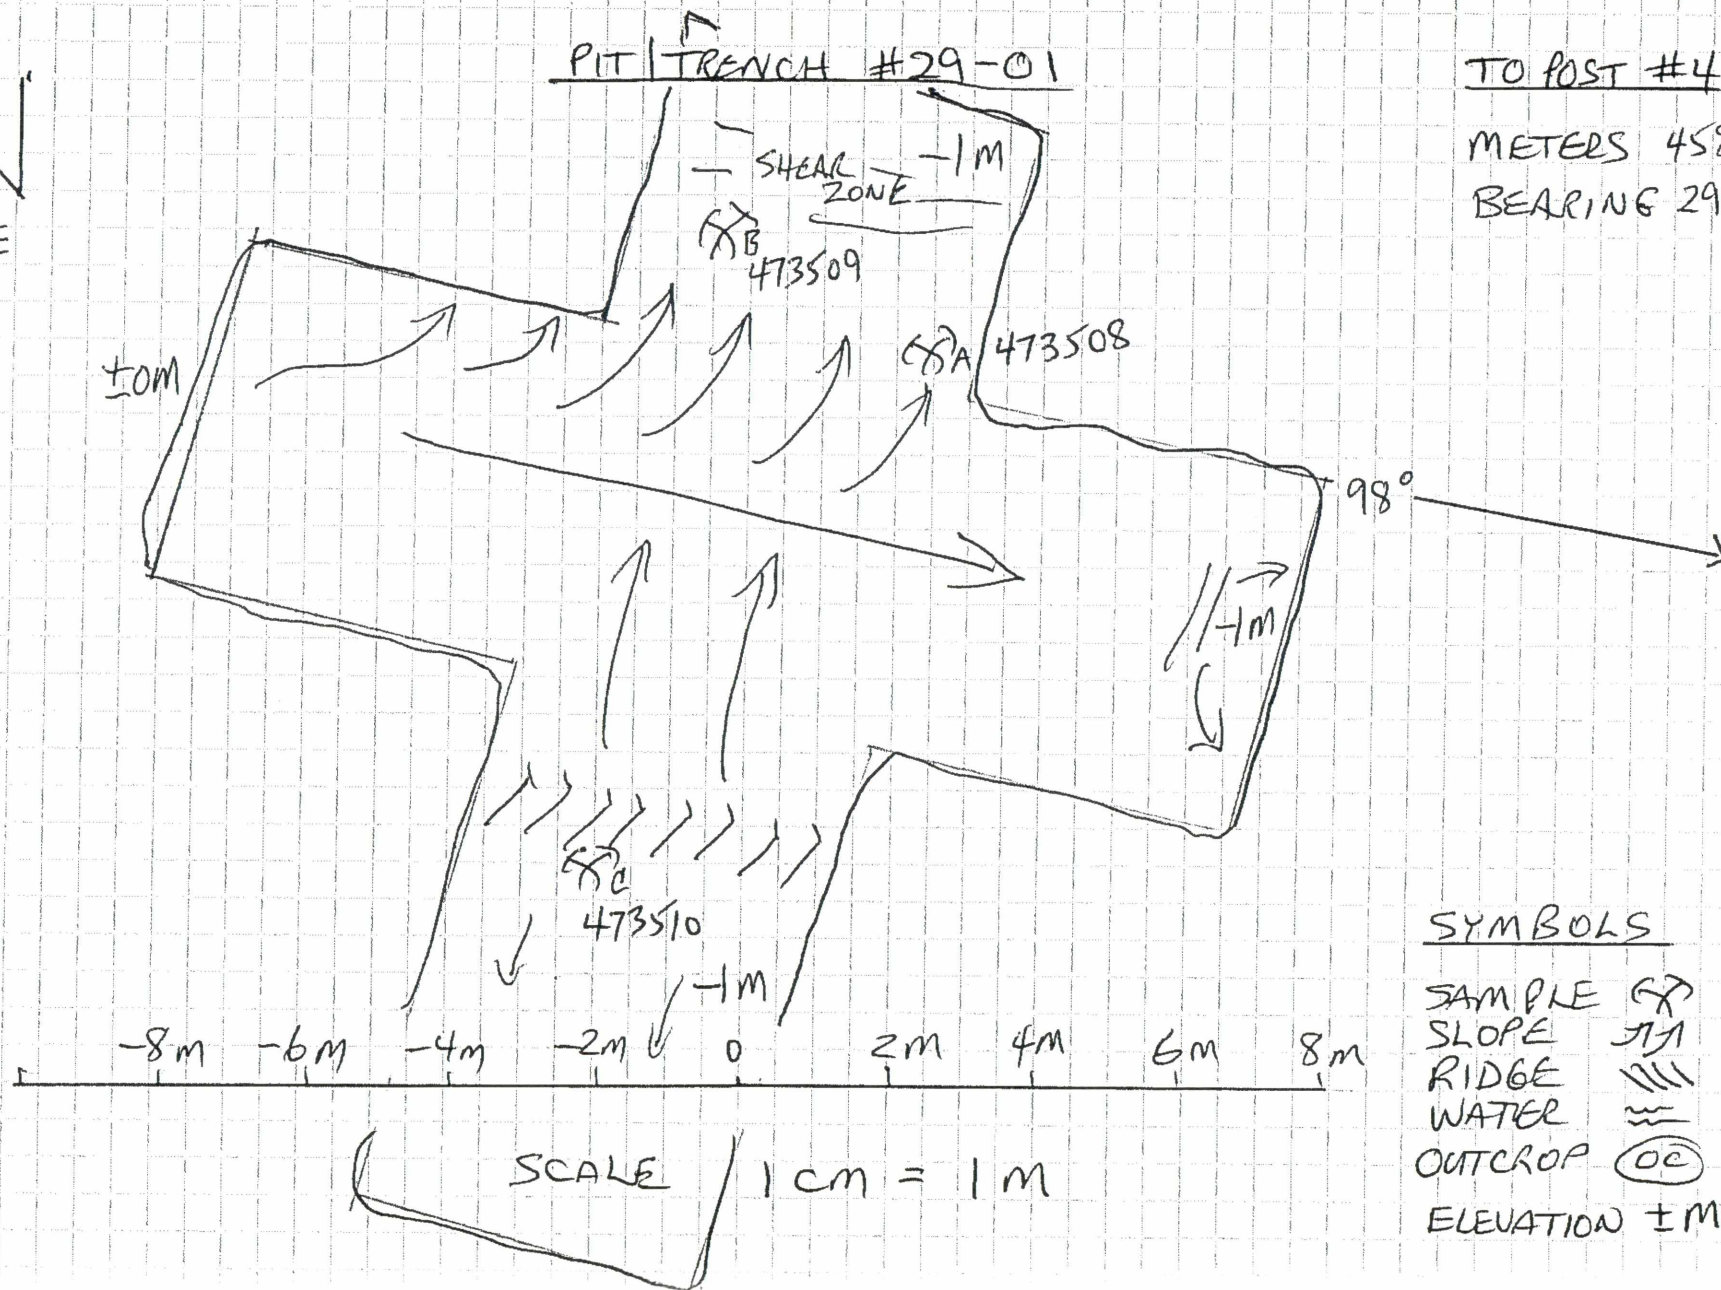 PIT/TRENCH #29-01
TO POST #4
METERS 458
BEARING 29
SHEAR
ZONE
-1M
B
473509
A 473508
±0M
98°
-1M
C
473510
-1M
-8m -6m -4m -2m 0 2m 4m 6m 8m
SCALE 1 cm = 1 m
SYMBOLS
SAMPLE
SLOPE
RIDGE
WATER
OUTCROP OC
ELEVATION ±M